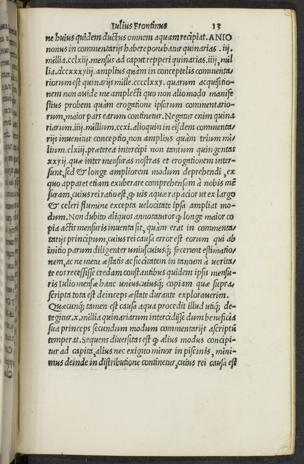 Iulius Frontinus 13
ne huius quidem ductus omnem aquam recipiat. ANIO
nouus in commentarijs habere ponitur quinarias . iij.
millia.cclxiij. mensus ad caput repperi quinarias .iiij. mil
lia.dccxxxviij. amplius quàm in conceptelis commenta
riorum est quinarijs mille.cccclxxv. quarum acquisitio-
nem non auide me amplecti quo non alio modo manife
stius probem quàm erogatione ipsorum commentario-
rum, maior pars earum continetur. Negatur enim quina
riarum .iiij. millium.ccxi. alioquin in eisdem commenta
rijs inuenitur conceptio, non amplius quàm trium mil
lium.clxiij. præterea intercipi non tantum quingentas
xxvij. quæ inter mensuras nostras et erogationem inter-
sunt, sed & longè ampliorem modum deprehendi, ex
quo apparet etiam exuberare comprehensam à nobis mẽ
suram, cuius rei ratio est, q̃ uis aquæ rapacior ut ex largo
& celeri flumine excepta uelocitate ipsa ampliat mo-
dum. Non dubito aliquos annotaturos q̃ longè maior co
pia actis mensuris inuenta sit, quàm erat in commenta
rijs principum, cuius rei causa error est eorum qui ab
initio parum diligenter
nem, ac ne metu æstatis ac siccitatum in tantum à uerita
te eos recessisse credam constantibus quidem ipsis mensu-
ris Iulio mense hanc unius.uiusq; copiam quæ supra
scripta tota est deinceps æstate durante explorauerim.
Quæcunq; tamen est causa quæ procedit illud utiq; de-
tegitur .x. millia quinariarum intercidisse dum beneficia
sua princeps secundum modum commentarijs ascriptũ
temperat. Sequens diuersitas est q̃ alius modus concipi-
tur ad capita, alius nec exiguo minor in piscinis, mini-
mus deinde in distributione continetur, cuius rei causa est